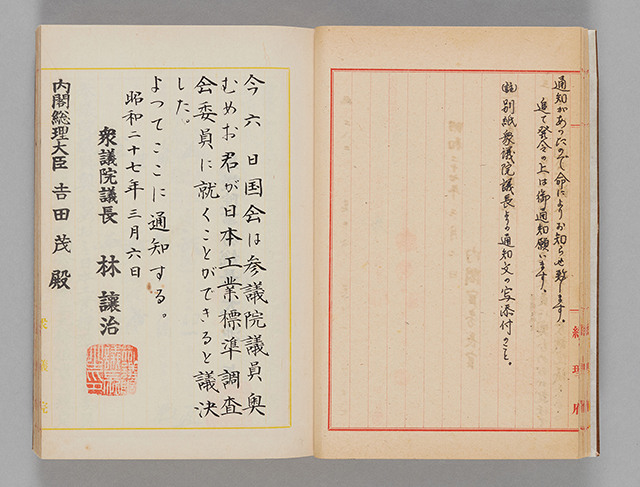 通知があったので命によりお知らせ致します。
進て発令の上は御通知願います。
別紙衆議院議長よりの通知文の写添付のこと。
今六日国会は参議院議員奥
むめお君が日本工業標準調査
会委員に就くことができると議決
した。
よってここに通知する。
昭和二十七年三月六日
衆議院議長 林 讓治
内閣総理大臣 吉田茂殿
衆議院